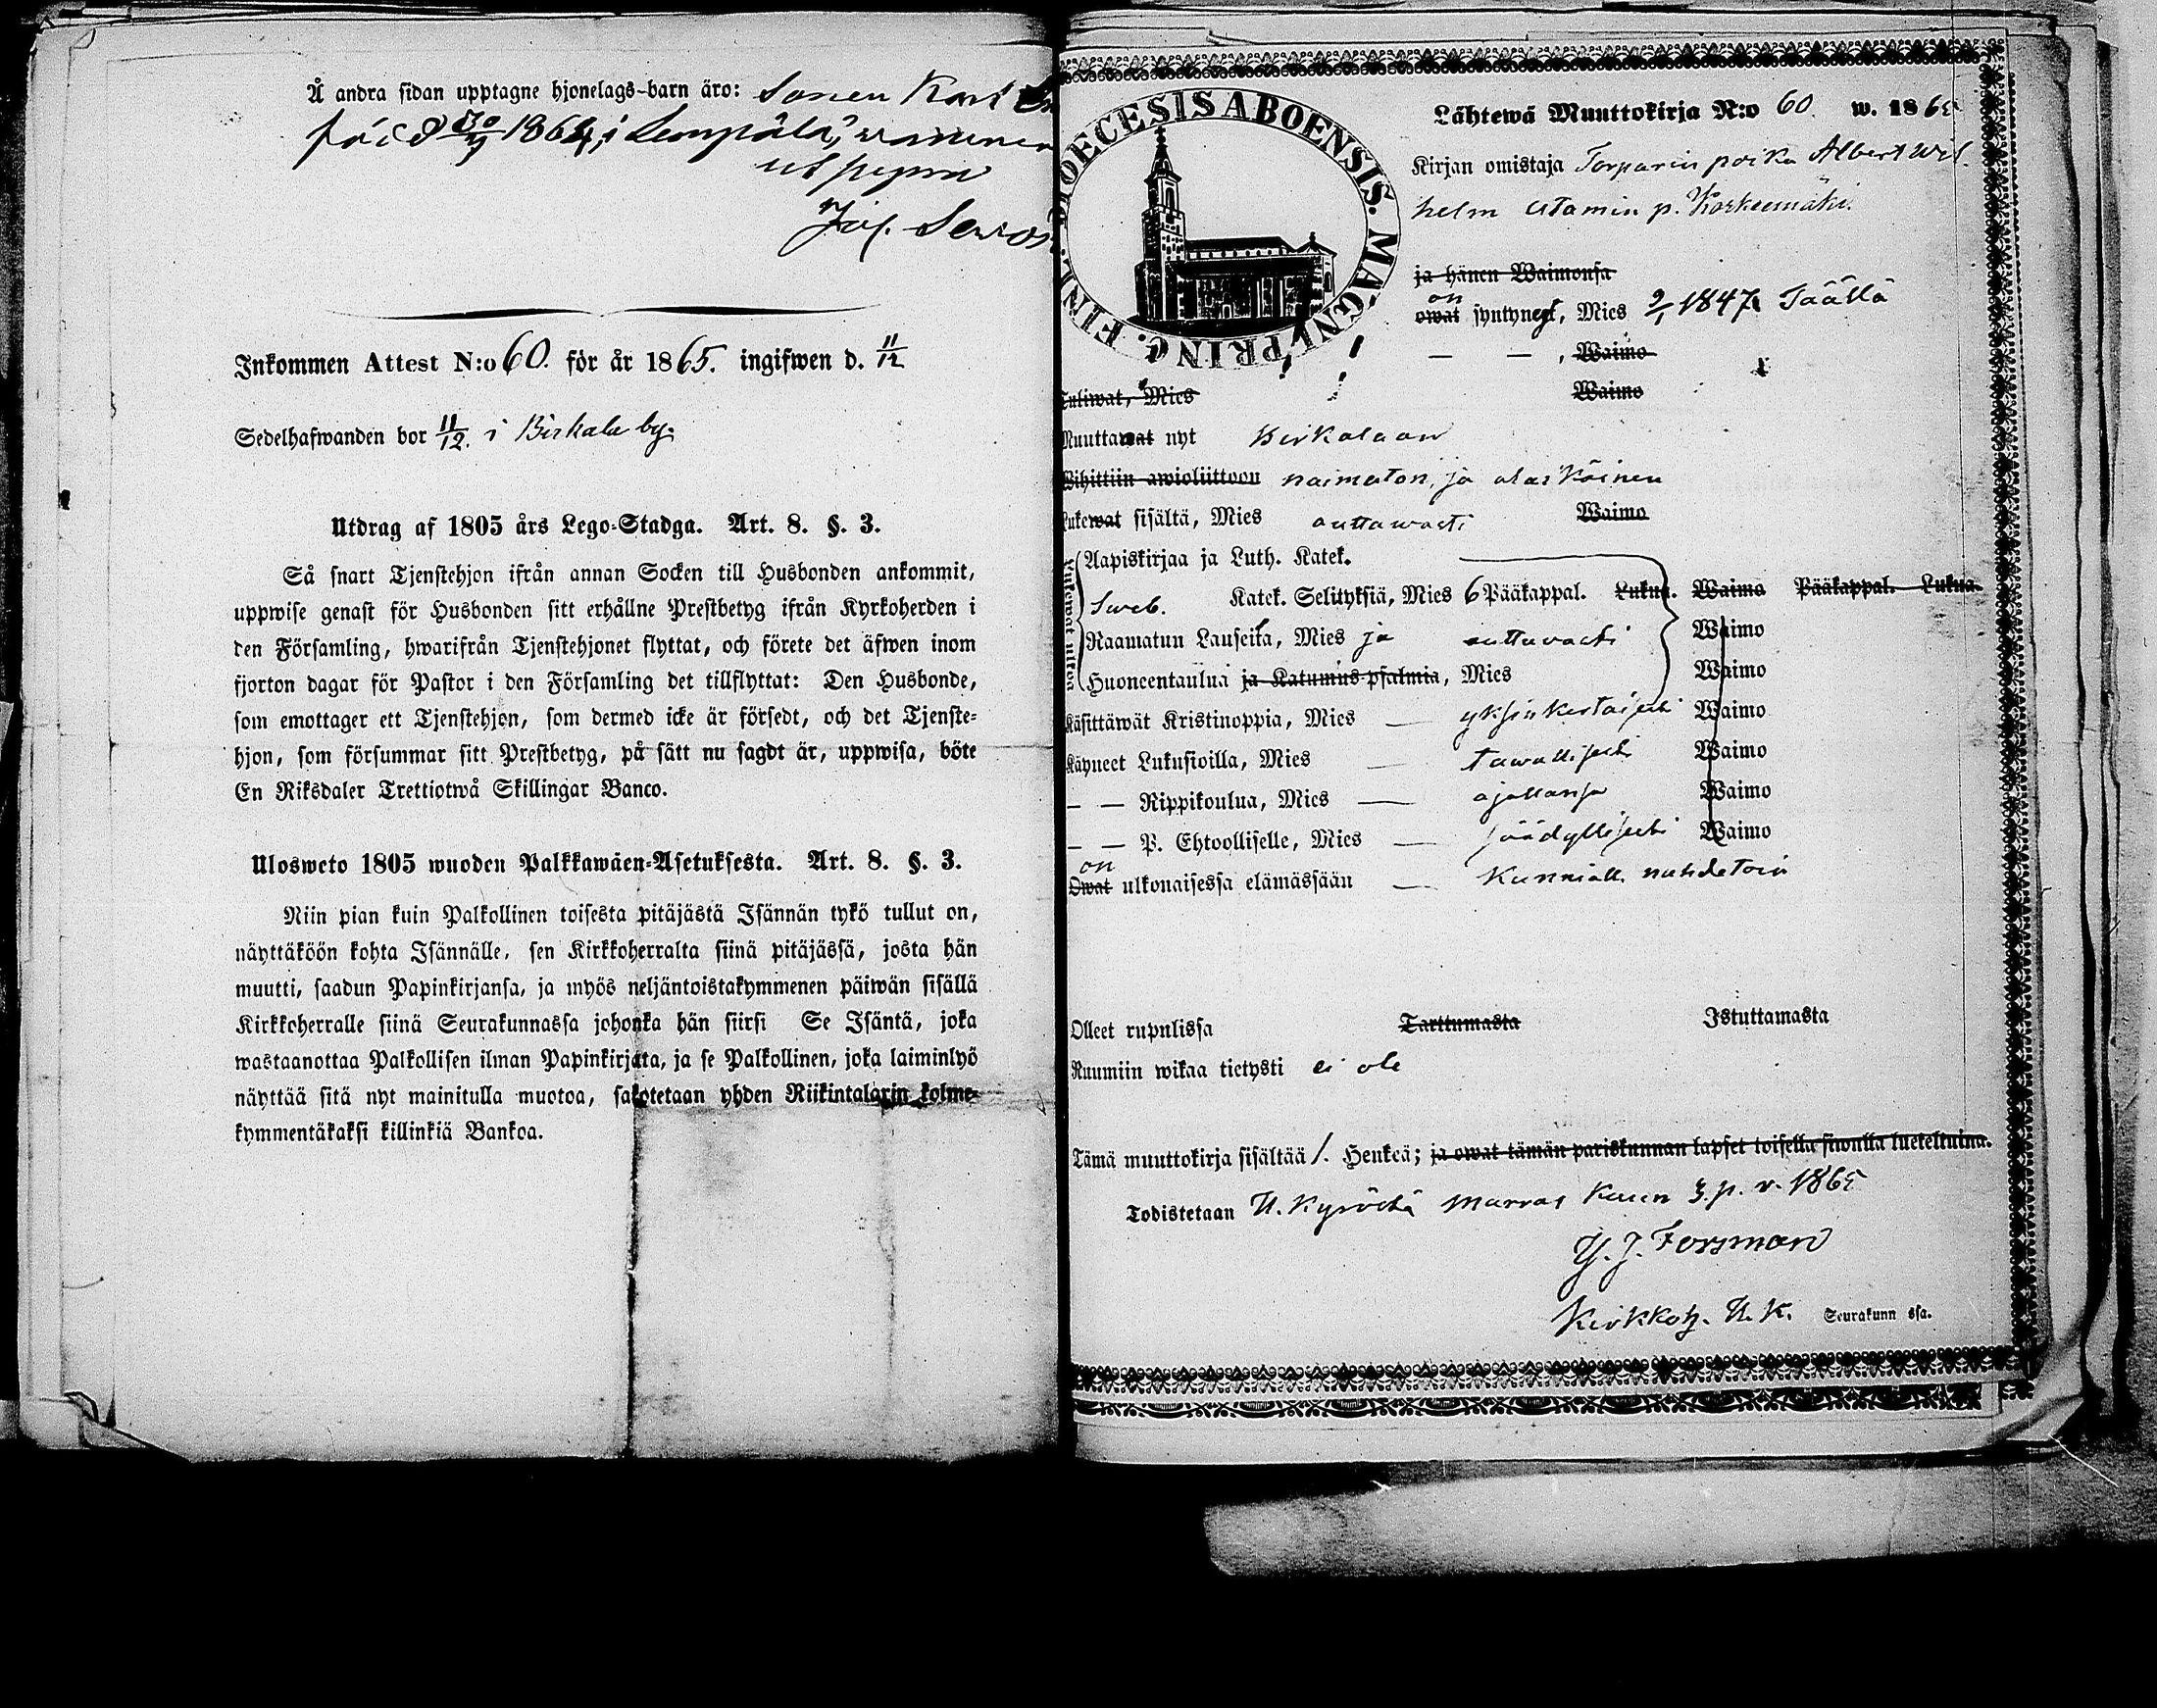 Å andra sidan upptagne hjonelags-barn äro: Sonen Karl
född 30/9 1864, i Lempälä,
Jos.
Inkommen Attest N:o 60. för år 1865. ingifwen d. 11/12
Sedelhafwanden bor 11/12. i Birkala by.
Utdrag af 1805 års Lego-Stadga. Art. 8. §. 3.
Så snart Tjenstehjon ifrån annan Socken till Husbonden ankommit,
uppwise genast för Husbonden sitt erhållne Prestbetyg ifrån Kyrkoherden i
den Församling, hwarifrån Tjenstehjonet flyttat, och förete det äfwen inom
fjorton dagar för Pastor i den Församling det tillflyttat: Den Husbonde,
som emottager ett Tjenstehjon, som dermed icke är försedt, och det Tjenste-
hjon, som försummar sitt Prestbetyg, på sätt nu sagdt är, uppwisa, böte
En Riksdaler Trettiotwå Skillingar Banco.
Ulosweto 1805 wuoden Palkkawäen-Asetuksesta. Art. 8. §. 3.
Niin pian kuin Palkollinen toisesta pitäjästä Isännän tykö tullut on,
näyttäköön kohta Isännälle, sen Kirkkoherralta siinä pitäjässä, josta hän
muutti, saadun Papinkirjansa, ja myös neljäntoistakymmenen päiwän sisällä
Kirkkoherralle siinä Seurakunnassa johonka hän siirsi Se Isäntä, joka
wastaanottaa Palkollisen ilman Papinkirjata, ja se Palkollinen, joka laiminlyö
näyttää sitä nyt mainitulla muotoa, sakotetaan yhden Riikintalarin kolme-
kymmentäkaksi killinkiä Bankoa.
DIOECESIS ABOENSIS. MAGNI PRINC. FINL.
Lähtewä Muuttokirja N:o 60. w. 1865
Kirjan omistaja Torparin poika Albert Wil-
helm Atamin p. Korkeemäki.
ja hänen Waimonsa
on
owat syntynyt, Mies 2/1 1847. Täällä
— — , Waimo
Tuliwat, Mies Waimo
Muuttawat nyt Birkalaan
Wihittiin awioliittoon naimaton, ja alaikäinen
Lukewat sisältä, Mies auttawasti Waimo
Lukewat ulkoa
Aapiskirjaa ja Luth. Katek.
Sweb. Katek. Selityksiä, Mies 6 Pääkappal. Lukua. Waimo Pääkappal. Lukua.
Raamatun Lauseita, Mies ja auttavasti Waimo
Huoneentaulua ja Katumus-psalmia, Mies Waimo
Käsittäwät Kristinoppia, Mies — yksinkertaisesti Waimo
Käyneet Lukusioilla, Mies — tawallisesti Waimo
— — Rippikoulua, Mies — ajallansa Waimo
— — P. Ehtoolliselle, Mies — säädyllisesti Waimo
on
Owat ulkonaisessa elämässään — Kunniall. nuhdetoin
Olleet rupulissa Tarttumasta Istuttamasta
Ruumiin wikaa tietysti ei ole
Tämä muuttokirja sisältää 1. Henkeä; ja owat tämän pariskunnan lapset toisella siwulla lueteltuina.
Todistetaan H. Kyröstä Marras Kuun 3. p. v. 1865
Y. J. Forsman
Kirkkoh. H. K. Seurakunn ssa.